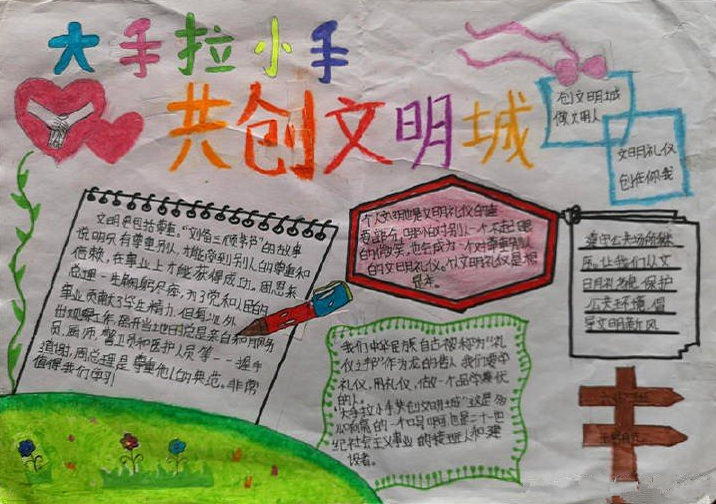 大手拉小手
共创文明城
创文明城
做文明人
文明礼仪
创在你我
文明是包括尊重。"刘备三顾茅芦"的故事
说明只有尊重别人,才能得到别人的尊重和
信赖,在事业上才能获得成功。周恩来
总理一生鞠躬尽瘁,为了党和人民的
事业贡献了毕生精力,但每次外
出视察工作,离开当地时总是亲自和服务
员,厨师,警卫员和医护人员等一一握手
道谢,周总理是尊重他人的典范。非常
值得我们学习
个人文明也是文明礼仪的重
要部分,哪怕对别人一个不起眼
的微笑,也会成为一个对尊重别人
的文明礼仪。个人文明礼仪是根
基本。
遵守公共场所秩
序。让我们从文
明礼貌 保护
公共环境,倡
导文明新风
我们中华民族自古被称为"礼
仪之邦"作为龙的传人 我们要学
礼仪,用礼仪,做一个品学兼优
的人。
"大手拉小手共创文明城"这是
响亮的一个口号啊,也是二十一世
纪社会主义事业的接班人和建
设者。